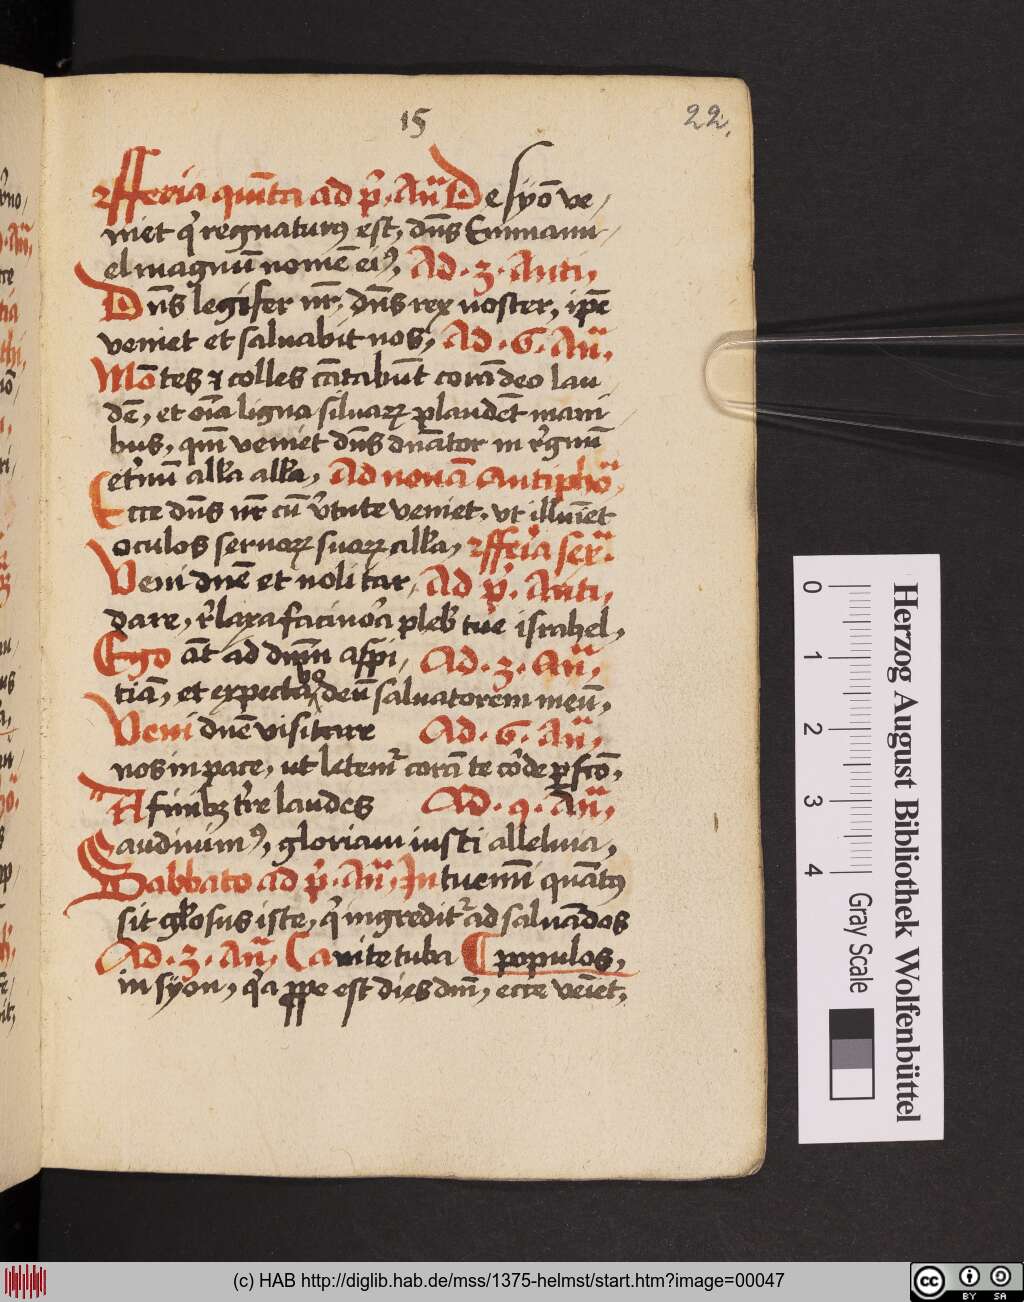 15
22.
fferia quīta ad p̄. Añ De syō ve
niet qͥ regnaturꝰ est, dñs Emmanu
el magnū nomē eiꝰ, Ad. 3. Anti,
Dñs legifer nr̄, dñs rex noster, ip̄e
veniet et saluabit nos, Ad. 6. Añ,
Mōtes ⁊ colles cātabūt corā deo lau
dē, et oīa ligna siluaꝝ plaudēt mani
bus, qm̄ veniet dñs dnātor in r̄gnū
et̄nū all̄a all̄a, Ad nonā Antiphō
Ecce dñs nr̄ cū v̄tute veniet, vt illuīet
oculos seruoꝝ suoꝝ all̄a, fferia sex̄
Veni dn̄e et noli tar, Ad p̄. Anti,
dare, r̄laxa facinōa pleb̄ tue israhel,
Ergo āt ad dnm̄ aspi, Ad. 3. Añ,
tiā, et expectabo deū saluatorem meū,
Veni dn̄e visitare Ad. 6. Añ,
nos in pace, ut letem̄ corā te cōde ꝑfcō,
A finibꝫ tr̄e laudes Ad. 9. Añ,
audiuimꝰ, gloriam iusti alleluia,
Sabbato ad p̄. Añ, Intuemī quātꝰ
sit gl̄osus iste, qͥ ingredit̄ ad saluādos
Ad. 3. Añ, Canite tuba populos,
in syon, qͥa ꝓpe est dies dnī, ecce veīet,
0 1 2 3 4
Gray Scale
Herzog August Bibliothek Wolfenbüttel
(c) HAB http://diglib.hab.de/mss/1375-helmst/start.htm?image=00047
cc BY SA